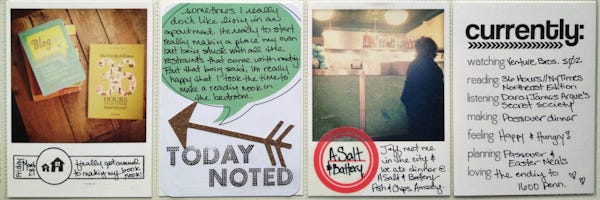 Blog
The New York Times
36
HOURS
NORTHEAST
Friday
I finally got around
to making my book
nook!
Sometimes I really
don't like living in an
apartment. I'm ready to start
really making a place my own
but being stuck with all the
restraints that come with renting.
But that being said, I'm really
happy that I took the time to
make a reading nook in
the bedroom.
TODAY
NOTED
A Salt
& Battery
Jeff met me
in the city &
we ate dinner @
A Salt & Battery
Fish & Chips. Amazing.
currently:
watching Venture Bros. S02
reading 36 Hours/NYTimes
Northeast Edition
listening Darcy James Argue's
Secret Society
making Passover dinner
feeling Happy & Hungry!
planning Passover &
Easter Meals
loving the ending to
1600 Penn.